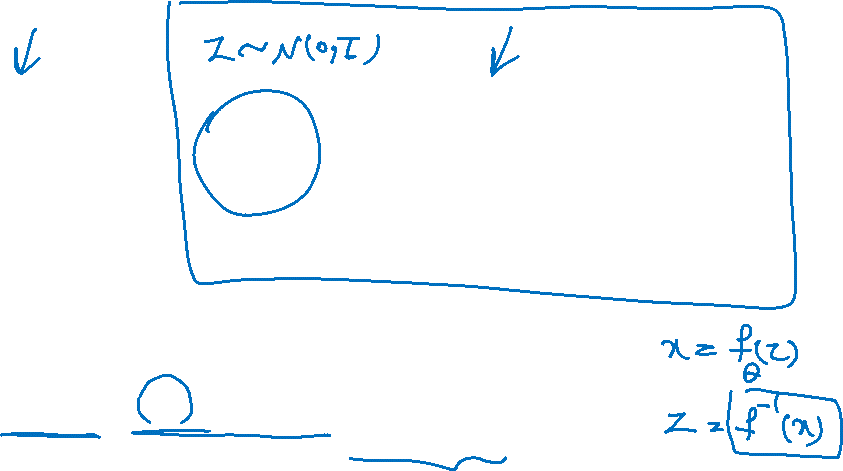 Z ~ N(0, I)
x = f_θ(z)
Z = f^{-1}(x)